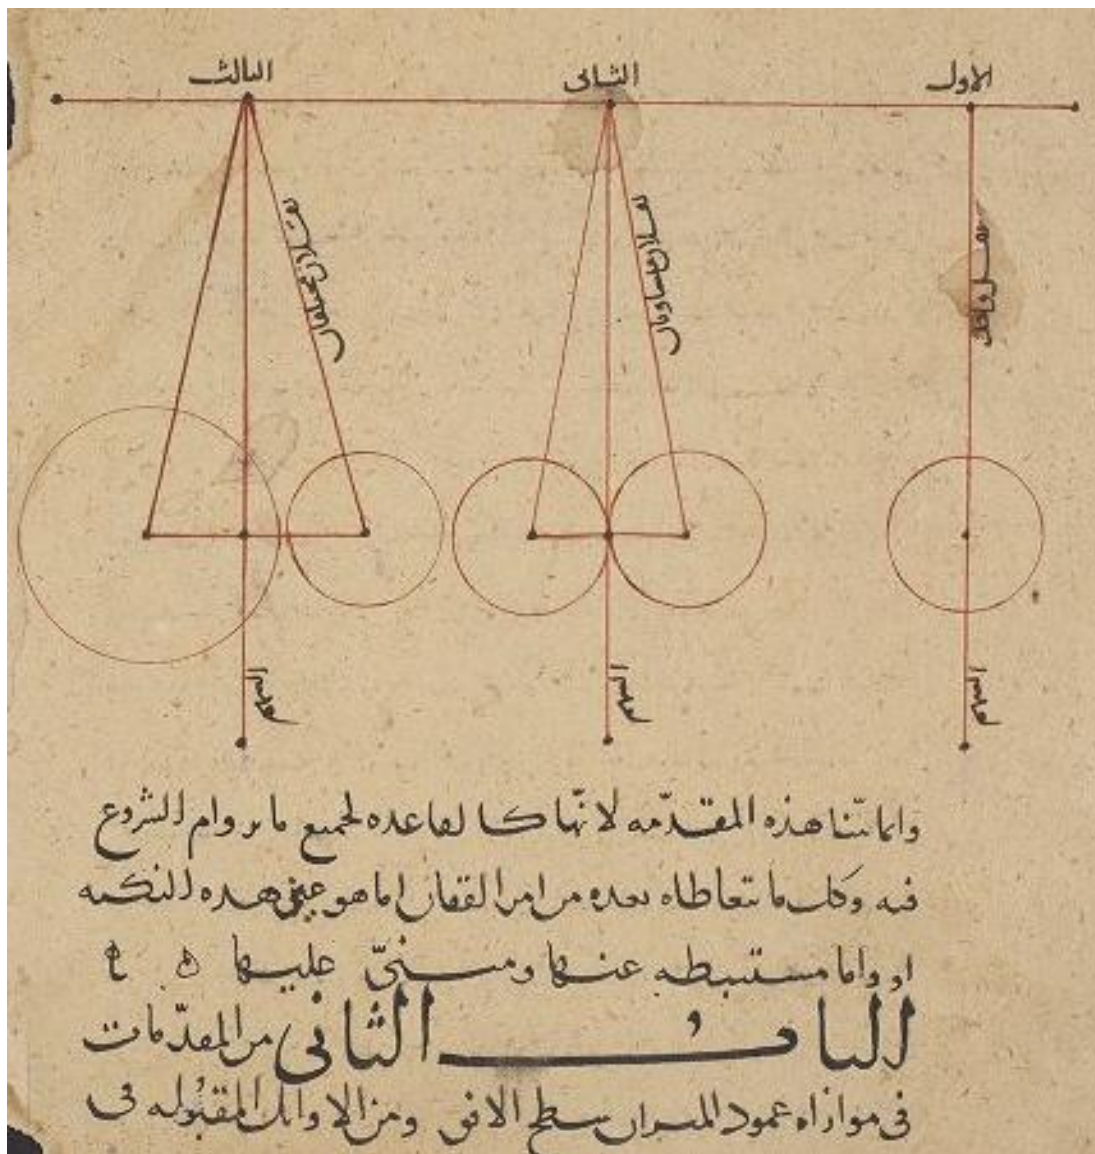 الاول
الثانى
الثالث
ثقل واحد
ثقلان متساويان
ثقلان مختلفان
وانما بيّنا هذه المقدّمه لانّها كالقاعده لجميع ما يروام الشروع
فيه وكل ما نتعاطاه بعده من امر القفان اما هو عين هذه النكته
او واما مستنبطه عنها ومبنىّ عليها ه
الباب الثانى من المقدّمات
فى موازاه عمود الميزان سطح الافق ومن الاوائل المقبُوله فى